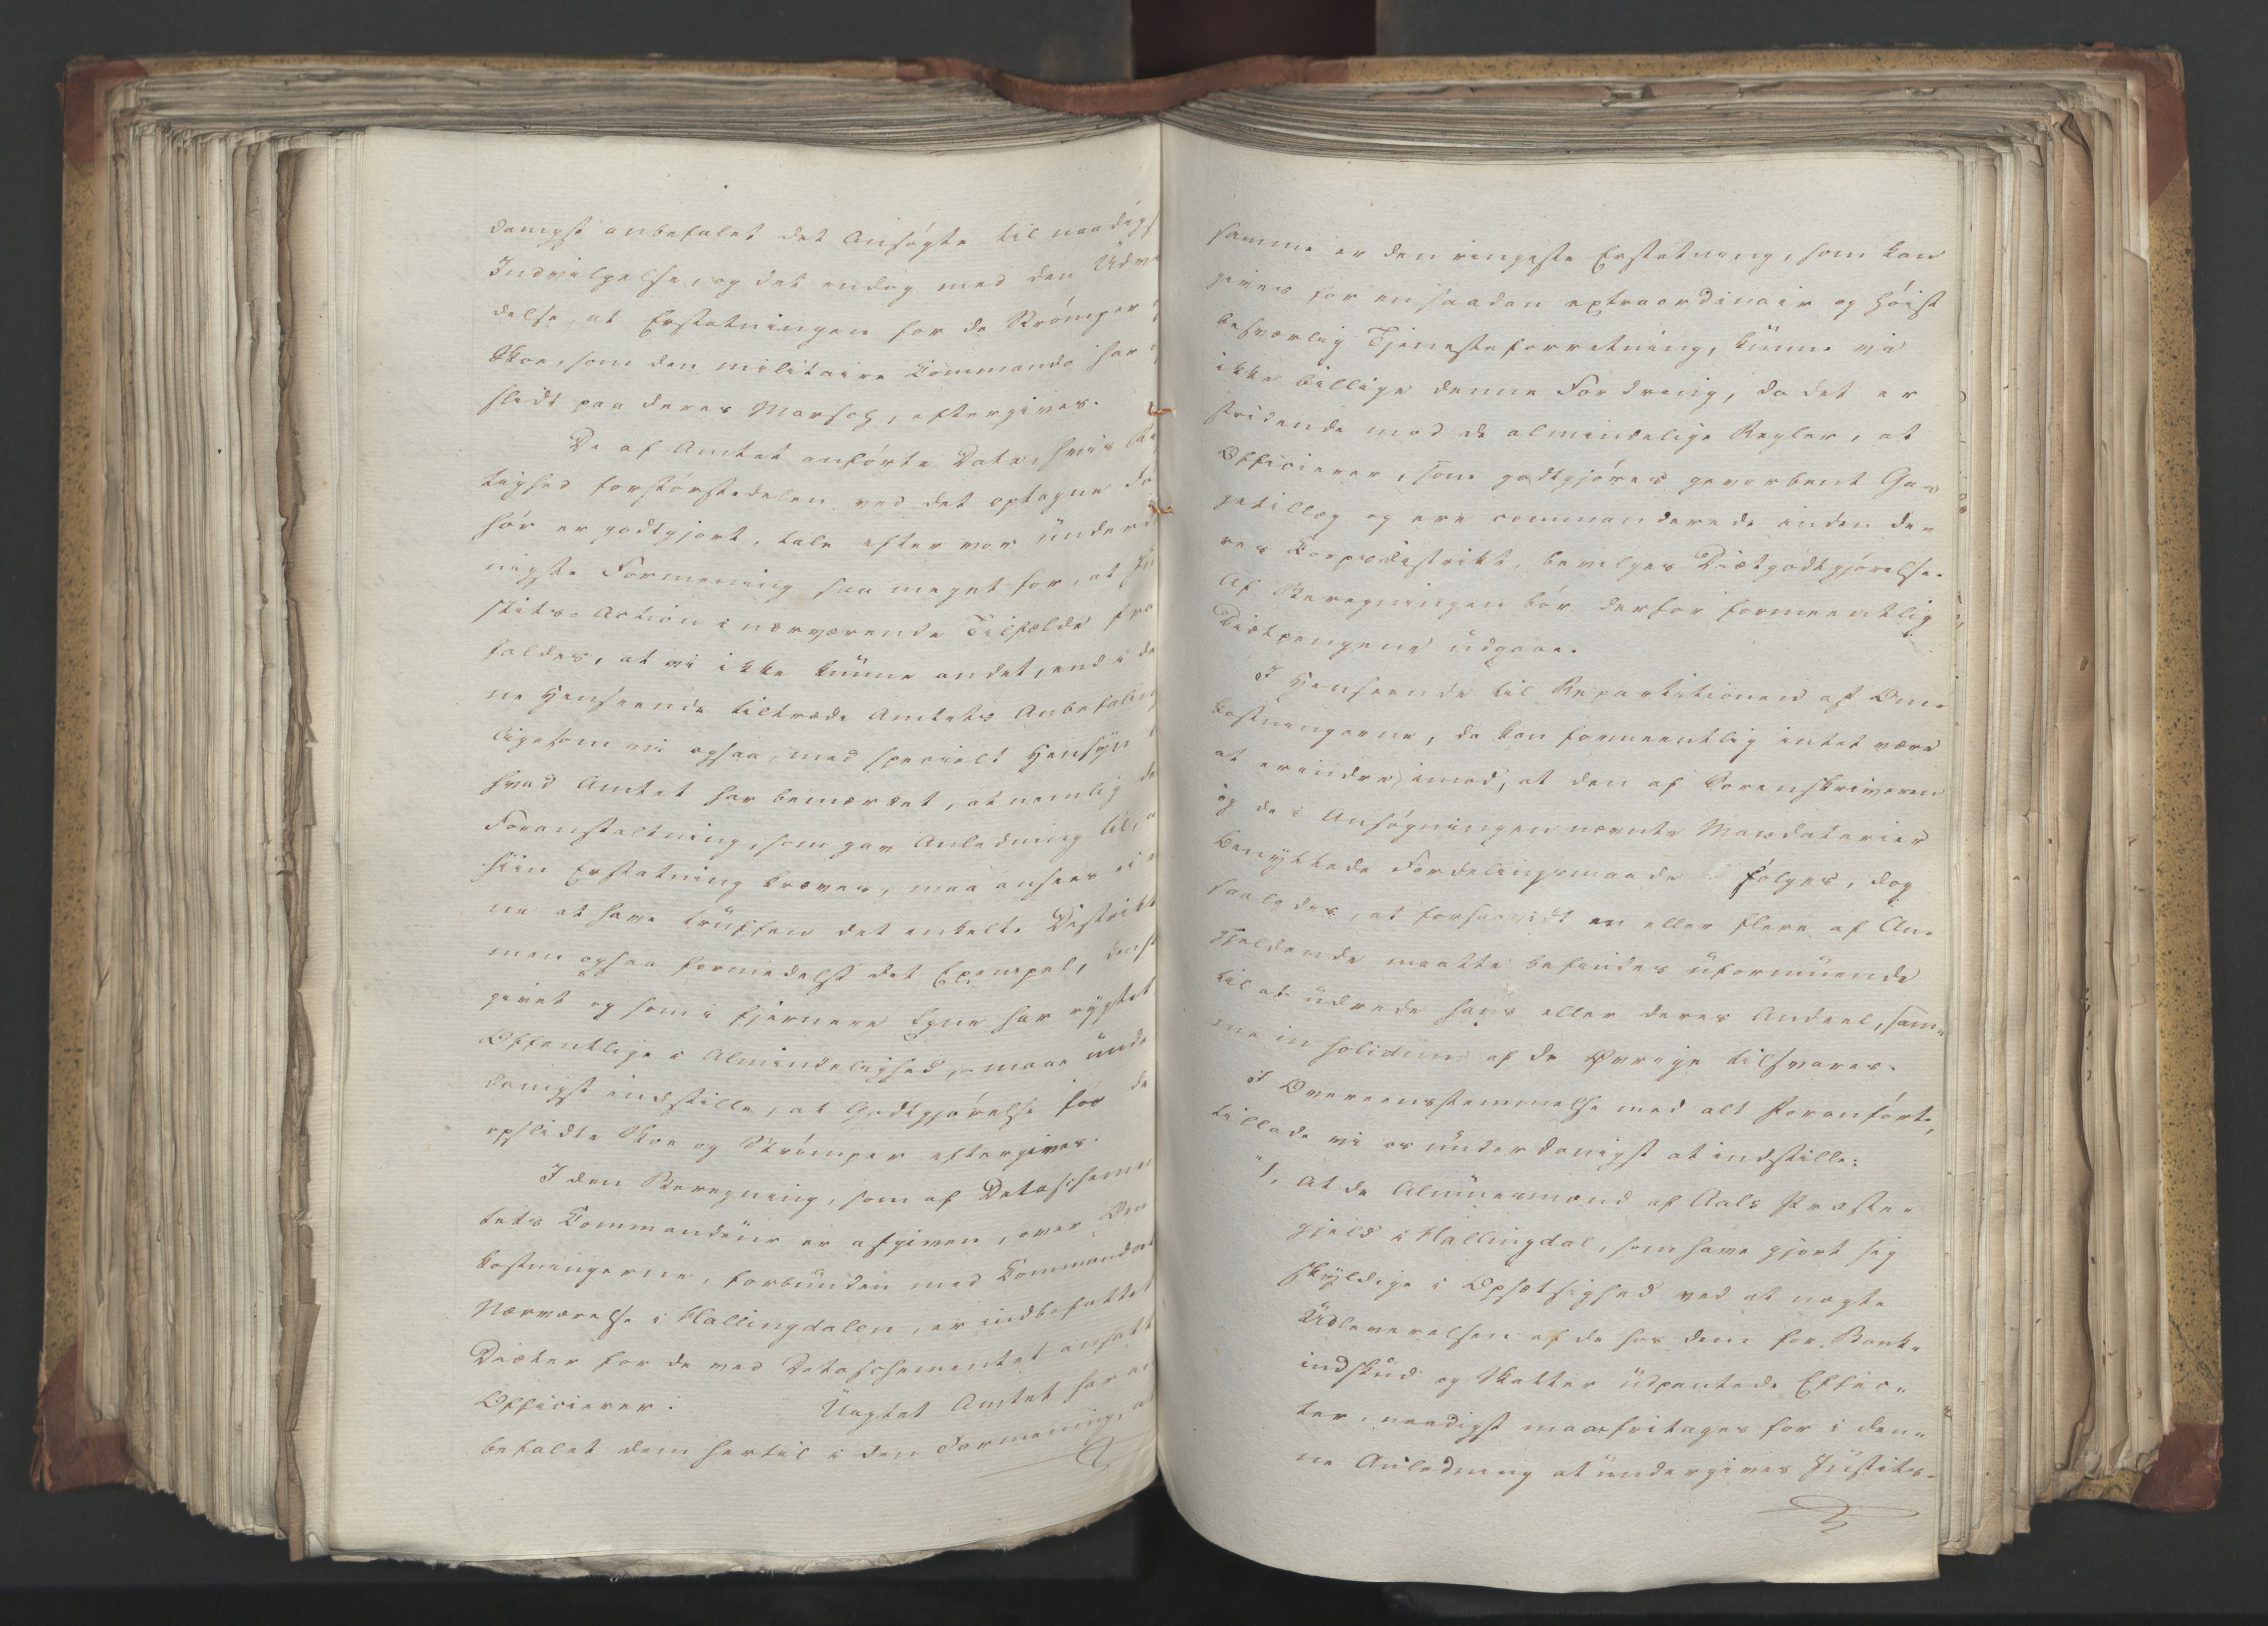 danigst anbefalet det Ansøgte til naadigs
Indvilgelse, og det endog med den Udvi
delse, at Erstatningen for de Strømper
Skoe, som den militaire Commando har
slidt paa deres Marsch, eftergives.
De af Amtet anførte Data, hvis
tighed forstørstedelen ved det optagne
hør er godtgjort, tale efter vor underd
nigste Formening saa meget for, at Ju
stits-Action i nærværende Tilfælde fra
faldes, at vi ikke kunne andet, end i de
ne Henseende tiltræde Amtets Anbefaling
ligesom vi ogsaa, med specielt Hensyn
hvad Amtet har bemærket, at nemlig de
Foranstaltning, som gav Anledning til,
hiin Erstatning kræves, maa ansees ei
ne at have truffen det enkelte Distrikt
men ogsaa formedelst det Exempel, den
givet og som i fjernere Egne har rygtet
Offentlige i Almindelighed, – maae unde
danigst indstille, at Godtgjørelse for de
opslidte Skoe og Strømper eftergives.
I den Beregning, som af Detaschemen
tets Commandeur er afgiven, over Om
kostningerne, forbunden med Commandoets
Nærværelse i Hallingdalen, er indbefattet
Diæter for de ved Detaschementet ansatte
Officierer. Uagtet Amtet har an
befalet dem hertil i den Formening, at
samme er den ringeste Erstatning, som kan
gives for en saadan extraordinair og høist
besværlig Tjenesteforretning, kunne vi
ikke billige denne Fordring, da det er
stridende mod de almindelige Regler, at
Officierer, som godtgjøres gevorbent Ga-
getillæg og ere commanderede inden de-
res Corpsdistrikt, bevilges Diætgodtgjørelse.
Af Beregningen bør derfor formeentlig
Diætpengene udgaae.
I Henseende til Repartitionen af Om-
kostningerne, da kan formeentlig intet være
at erindre imod, at den af Sorenskriveren
og de i Ansøgningen nævnte Mandatarier
benyttede Fordelingsmaade følges, dog
saaledes, at forsaavidt en eller flere af An-
gjeldende maatte befindes uformuende
til at udrede hans eller deres Andeel, sam-
me in solidum af de Øvrige tilsvares.
I Overeensstemmelse med alt Foranførte,
tillade vi os underdanigst at indstille:
"1, At de Almuesmænd af Aals Præste-
gjeld i Hallingdal, som have gjort sig
skyldige i Opsætsighed ved at nægte
Udleverelsen af de hos dem for Bank-
indskud og Skatter udpantede Effec-
ter, naadigst maae fritages for i den-
ne Anledning at undergives Justits-